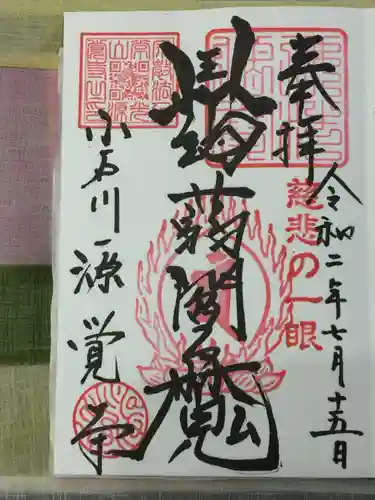 奉拝
令和二年七月十五日
慈悲の一眼
蒟蒻閻魔
小石川 源覚寺